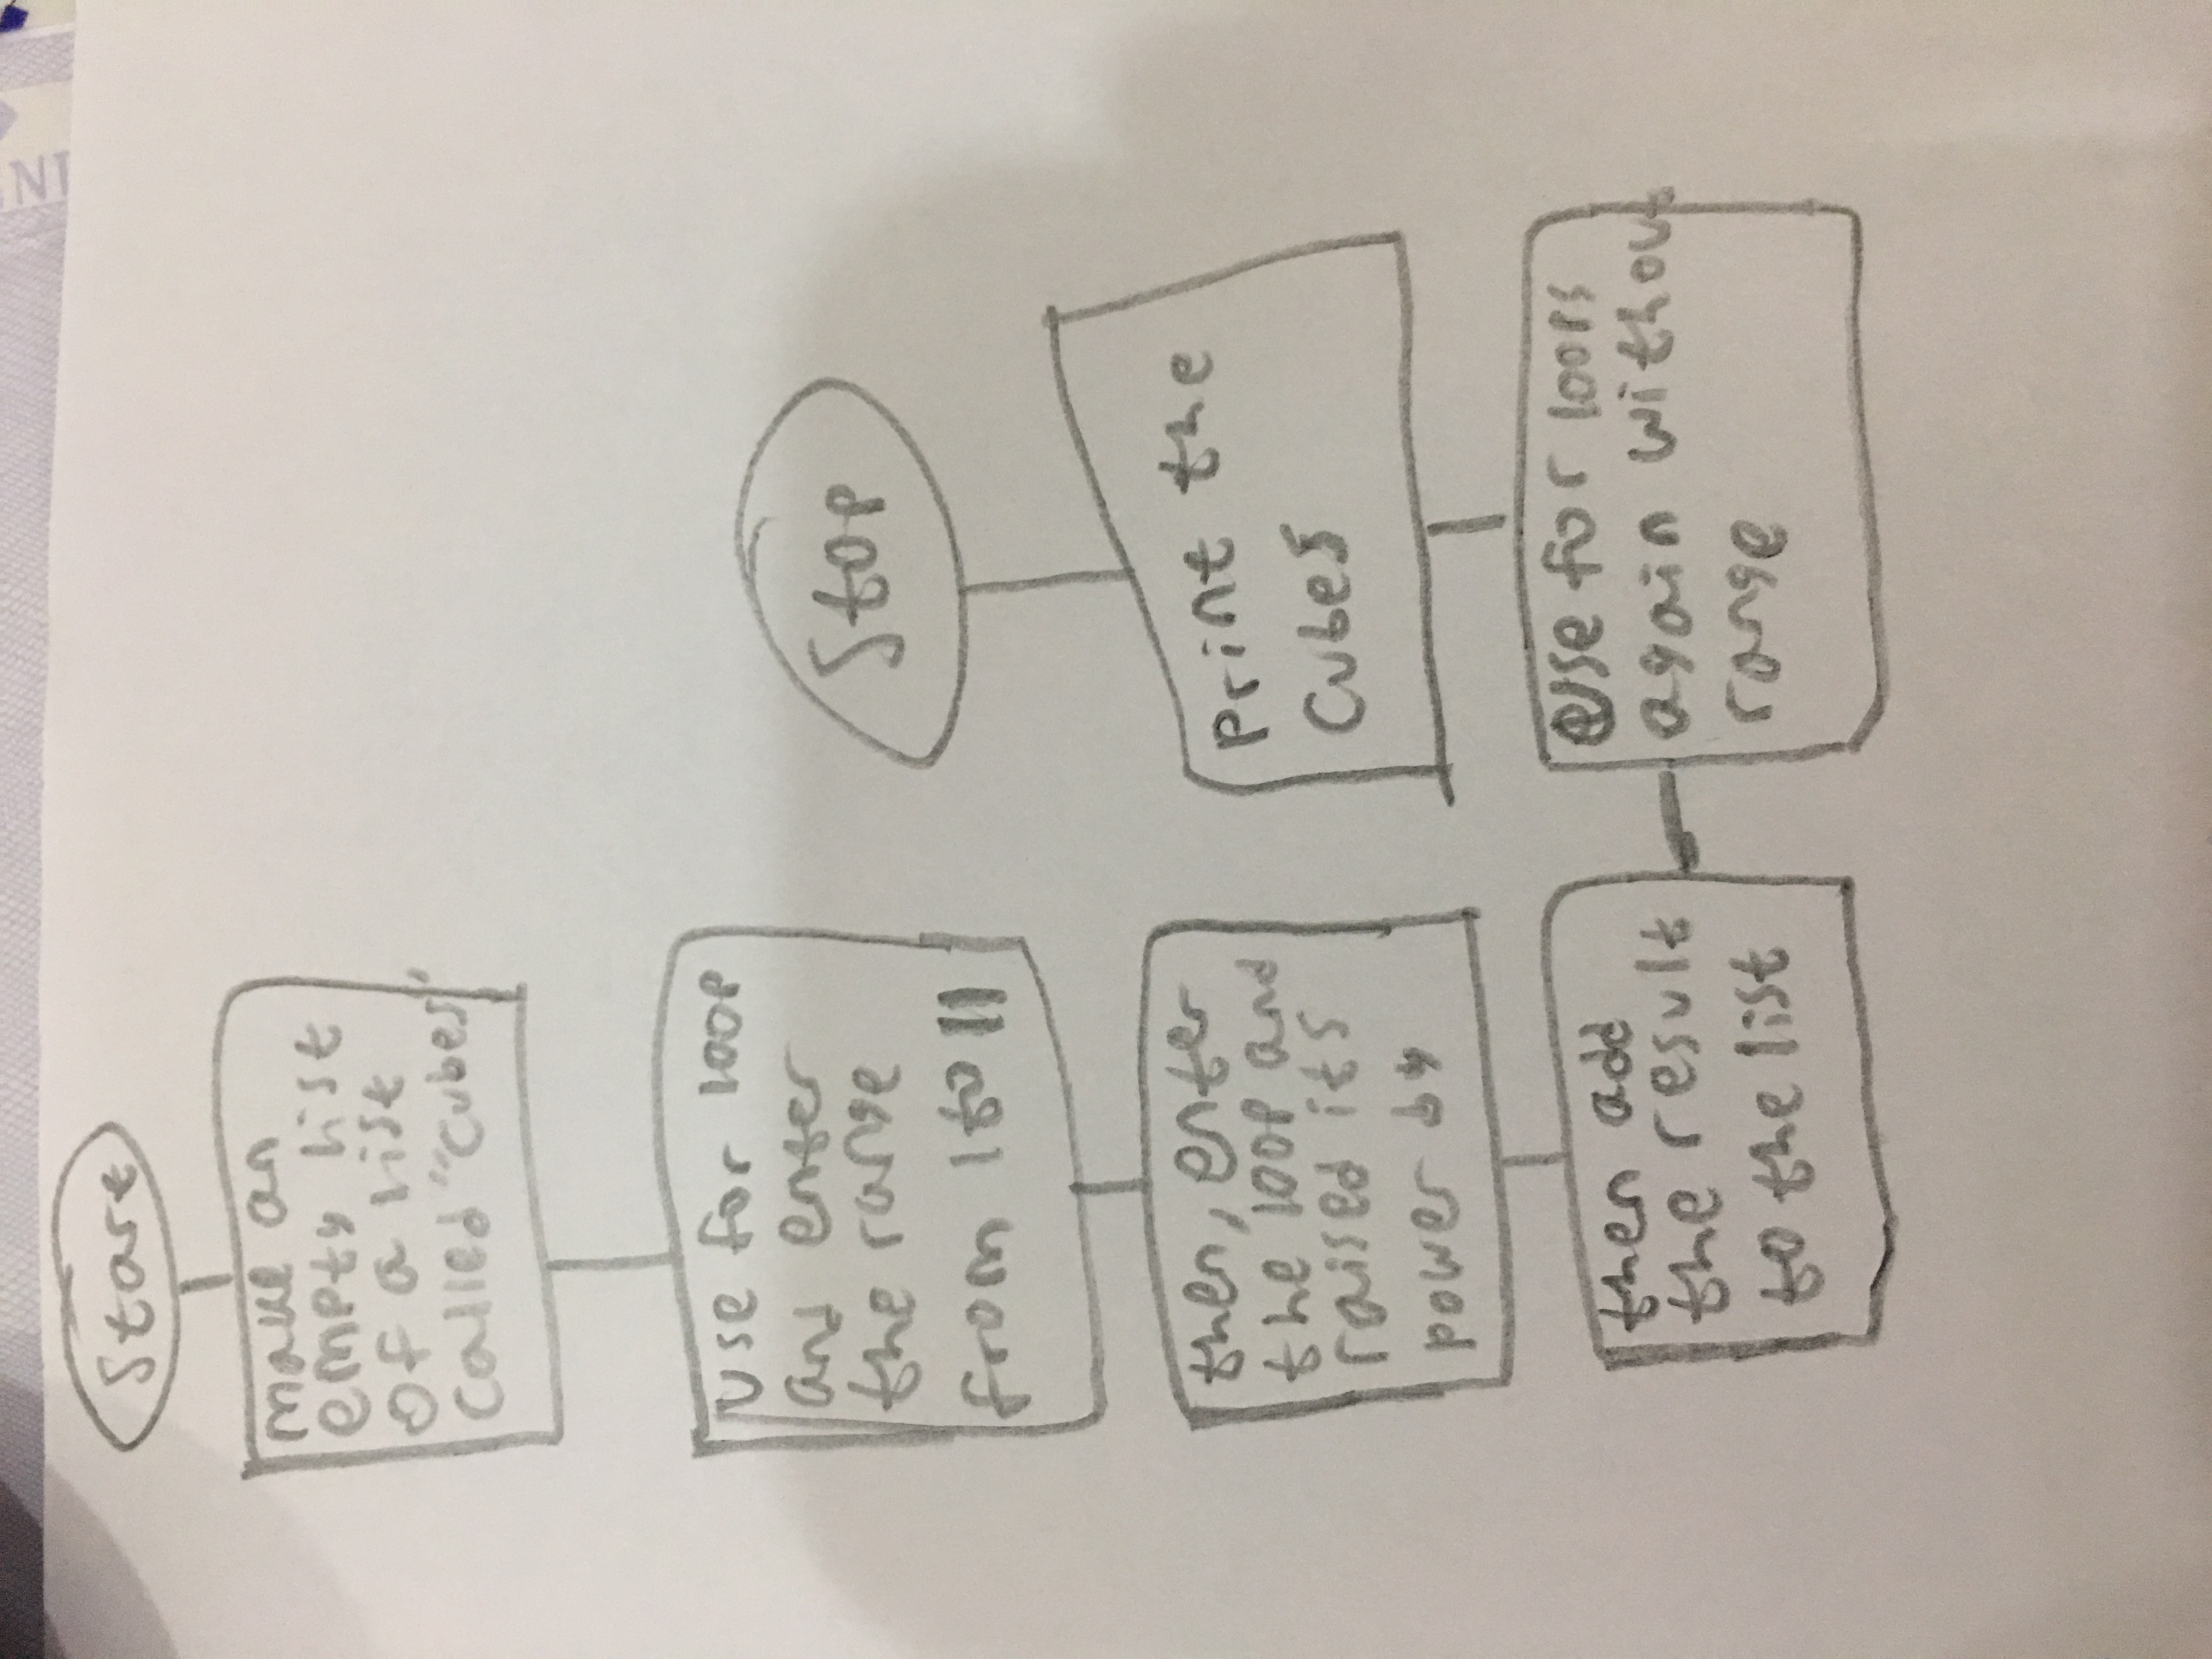 Start
make an
empty list
of a list
called "cubes"
use for loop
and enter
the range
from 1 to 11
then, enter
the loop and
raised its
power by
then add
the result
to the list
Use for loops
again without
range
print the
cubes
Stop